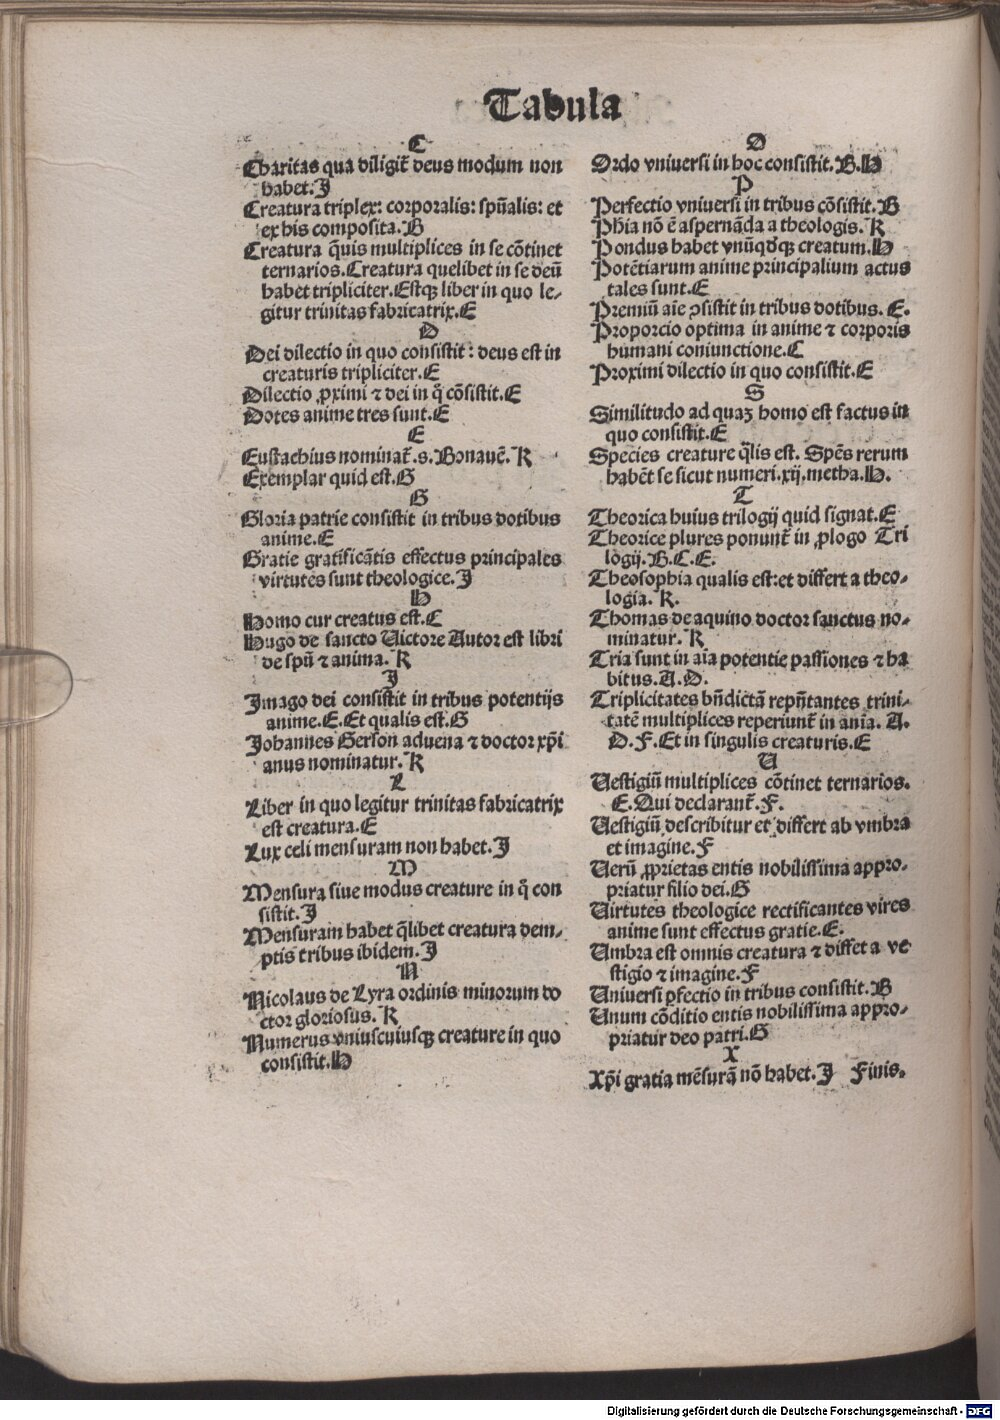 Tabula
C
Charitas qua diligit̃ deus modum non
habet.J
Creatura triplex: corporalis: spũalis: et
ex his composita.B
Creatura q̃uis multiplices in se cõtinet
ternarios.Creatura quelibet in se deũ
habet tripliciter.Estqꝫ liber in quo le-
gitur trinitas fabricatrix.E
D
Dei dilectio in quo consistit: deus est in
creaturis tripliciter.E
Dilectio ꝓximi ⁊ dei in q̃ cõsistit.E
Dotes anime tres sunt.E
E
Eustachius nominat̃.s.Bonauẽ.K
Exemplar quid est.G
G
Gloria patrie consistit in tribus dotibus
anime.E
Gratie gratificãtis effectus principales
virtutes sunt theologice.J
H
Homo cur creatus est.C
Hugo de sancto Uictore Autor est libri
de spũ ⁊ anima. K
J
Jmago dei consistit in tribus potentijs
anime.E.Et qualis est.G
Johannes Gerson aduena ⁊ doctor xp̃i
anus nominatur.K
L
Liber in quo legitur trinitas fabricatrix
est creatura.E
Lux celi mensuram non habet.J
M
Mensura siue modus creature in q̃ con
sistit.J
Mensuram habet q̃libet creatura dem-
ptis tribus ibidem.J
N
Nicolaus de Lyra ordinis minorum do
ctor gloriosus. K
Numerus vniuscuiusqꝫ creature in quo
consistit.H
O
Ordo vniuersi in hoc consistit.B.H
P
Perfectio vniuersi in tribus cõsistit.B
Ph̃ia nõ ẽ aspernãda a theologis.K
Pondus habet vnũqdqꝫ creatum.H
Potẽtiarum anime principalium actus
tales sunt.E
Premiũ aĩe ꝯsistit in tribus dotibus. E.
Proporcio optima in anime ⁊ corporis
humani coniunctione.C
Proximi dilectio in quo consistit.E
S
Similitudo ad quaꝫ homo est factus in
quo consistit.E
Species creature q̃lis est. Spẽs rerum
habẽt se sicut numeri.xij.metha.H.
T
Theorica huius trilogij quid signat.E
Theorice plures ponunt̃ in ꝓlogo Tri
logij.B.C.E.
Theosophia qualis est:et differt a theo-
logia. K.
Thomas de aquino doctor sanctus no-
minatur. K
Tria sunt in aĩa potentie passiones ⁊ ha
bitus.A.D.
Triplicitates bñdictã rep̃ntantes trini-
tatẽ multiplices reperiunt̃ in anĩa. A.
D.F.Et in singulis creaturis.E
U
Uestigiũ multiplices cõtinet ternarios.
E.Qui declarant̃.F.
Uestigiũ describitur et differt ab vmbra
et imagine.F
Uerũ ꝓprietas entis nobilissima appro-
priatur filio dei.G
Uirtutes theologice rectificantes vires
anime sunt effectus gratie.E.
Umbra est omnis creatura ⁊ differt a ve
stigio ⁊ imagine.F
Uniuersi ꝑfectio in tribus consistit.B
Unum cõditio entis nobilissima appro-
priatur deo patri.G
X
Xp̃i gratia mẽsurã nõ habet.J Finis.
Digitalisierung gefördert durch die Deutsche Forschungsgemeinschaft - DFG